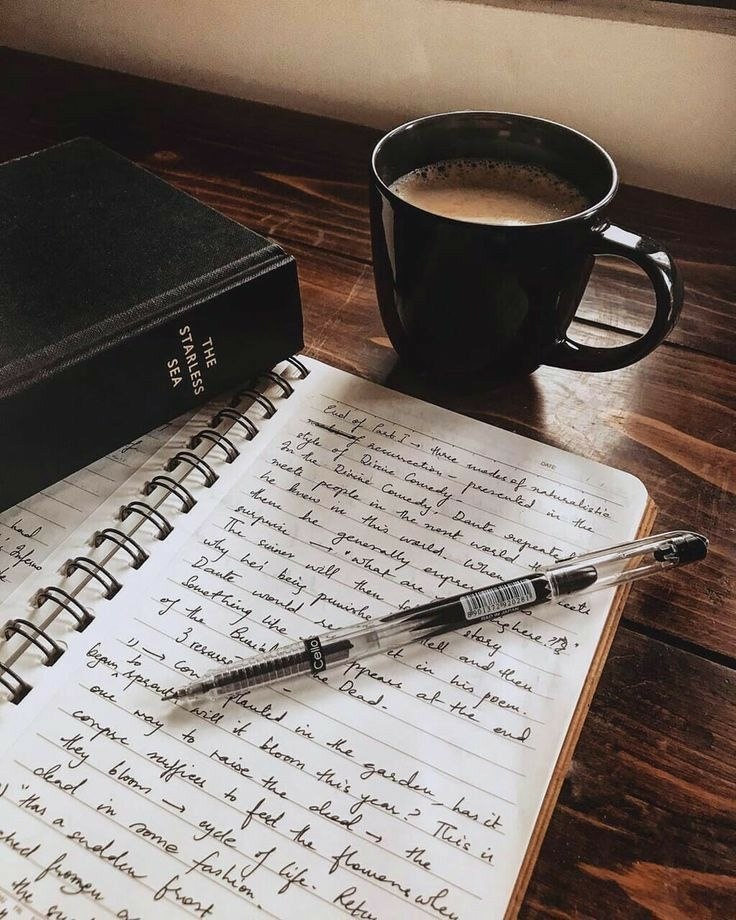 THE
STARLESS
SEA
DATE
End of Part I → three modes of naturalistic
of resurrection - presented in the
style of Divine Comedy
In the Divine Comedy, Dante repeatedly
meets people in the next world that
he knew in this world. When meets
them, he generally
surprise → "what are here?"
The sinner will then story
why he's being hell and then
Dante would it in his poem.
Something like appears at the end
of the Burial the Dead.
3
1) → planted in the garden, has it
begun to sprout? will it bloom this year? This is
one way to raise the dead → the
corpse suffices to feed the flowers when
they bloom → cycle of life.
dead in some fashion.
"Has a sudden frost
Cello